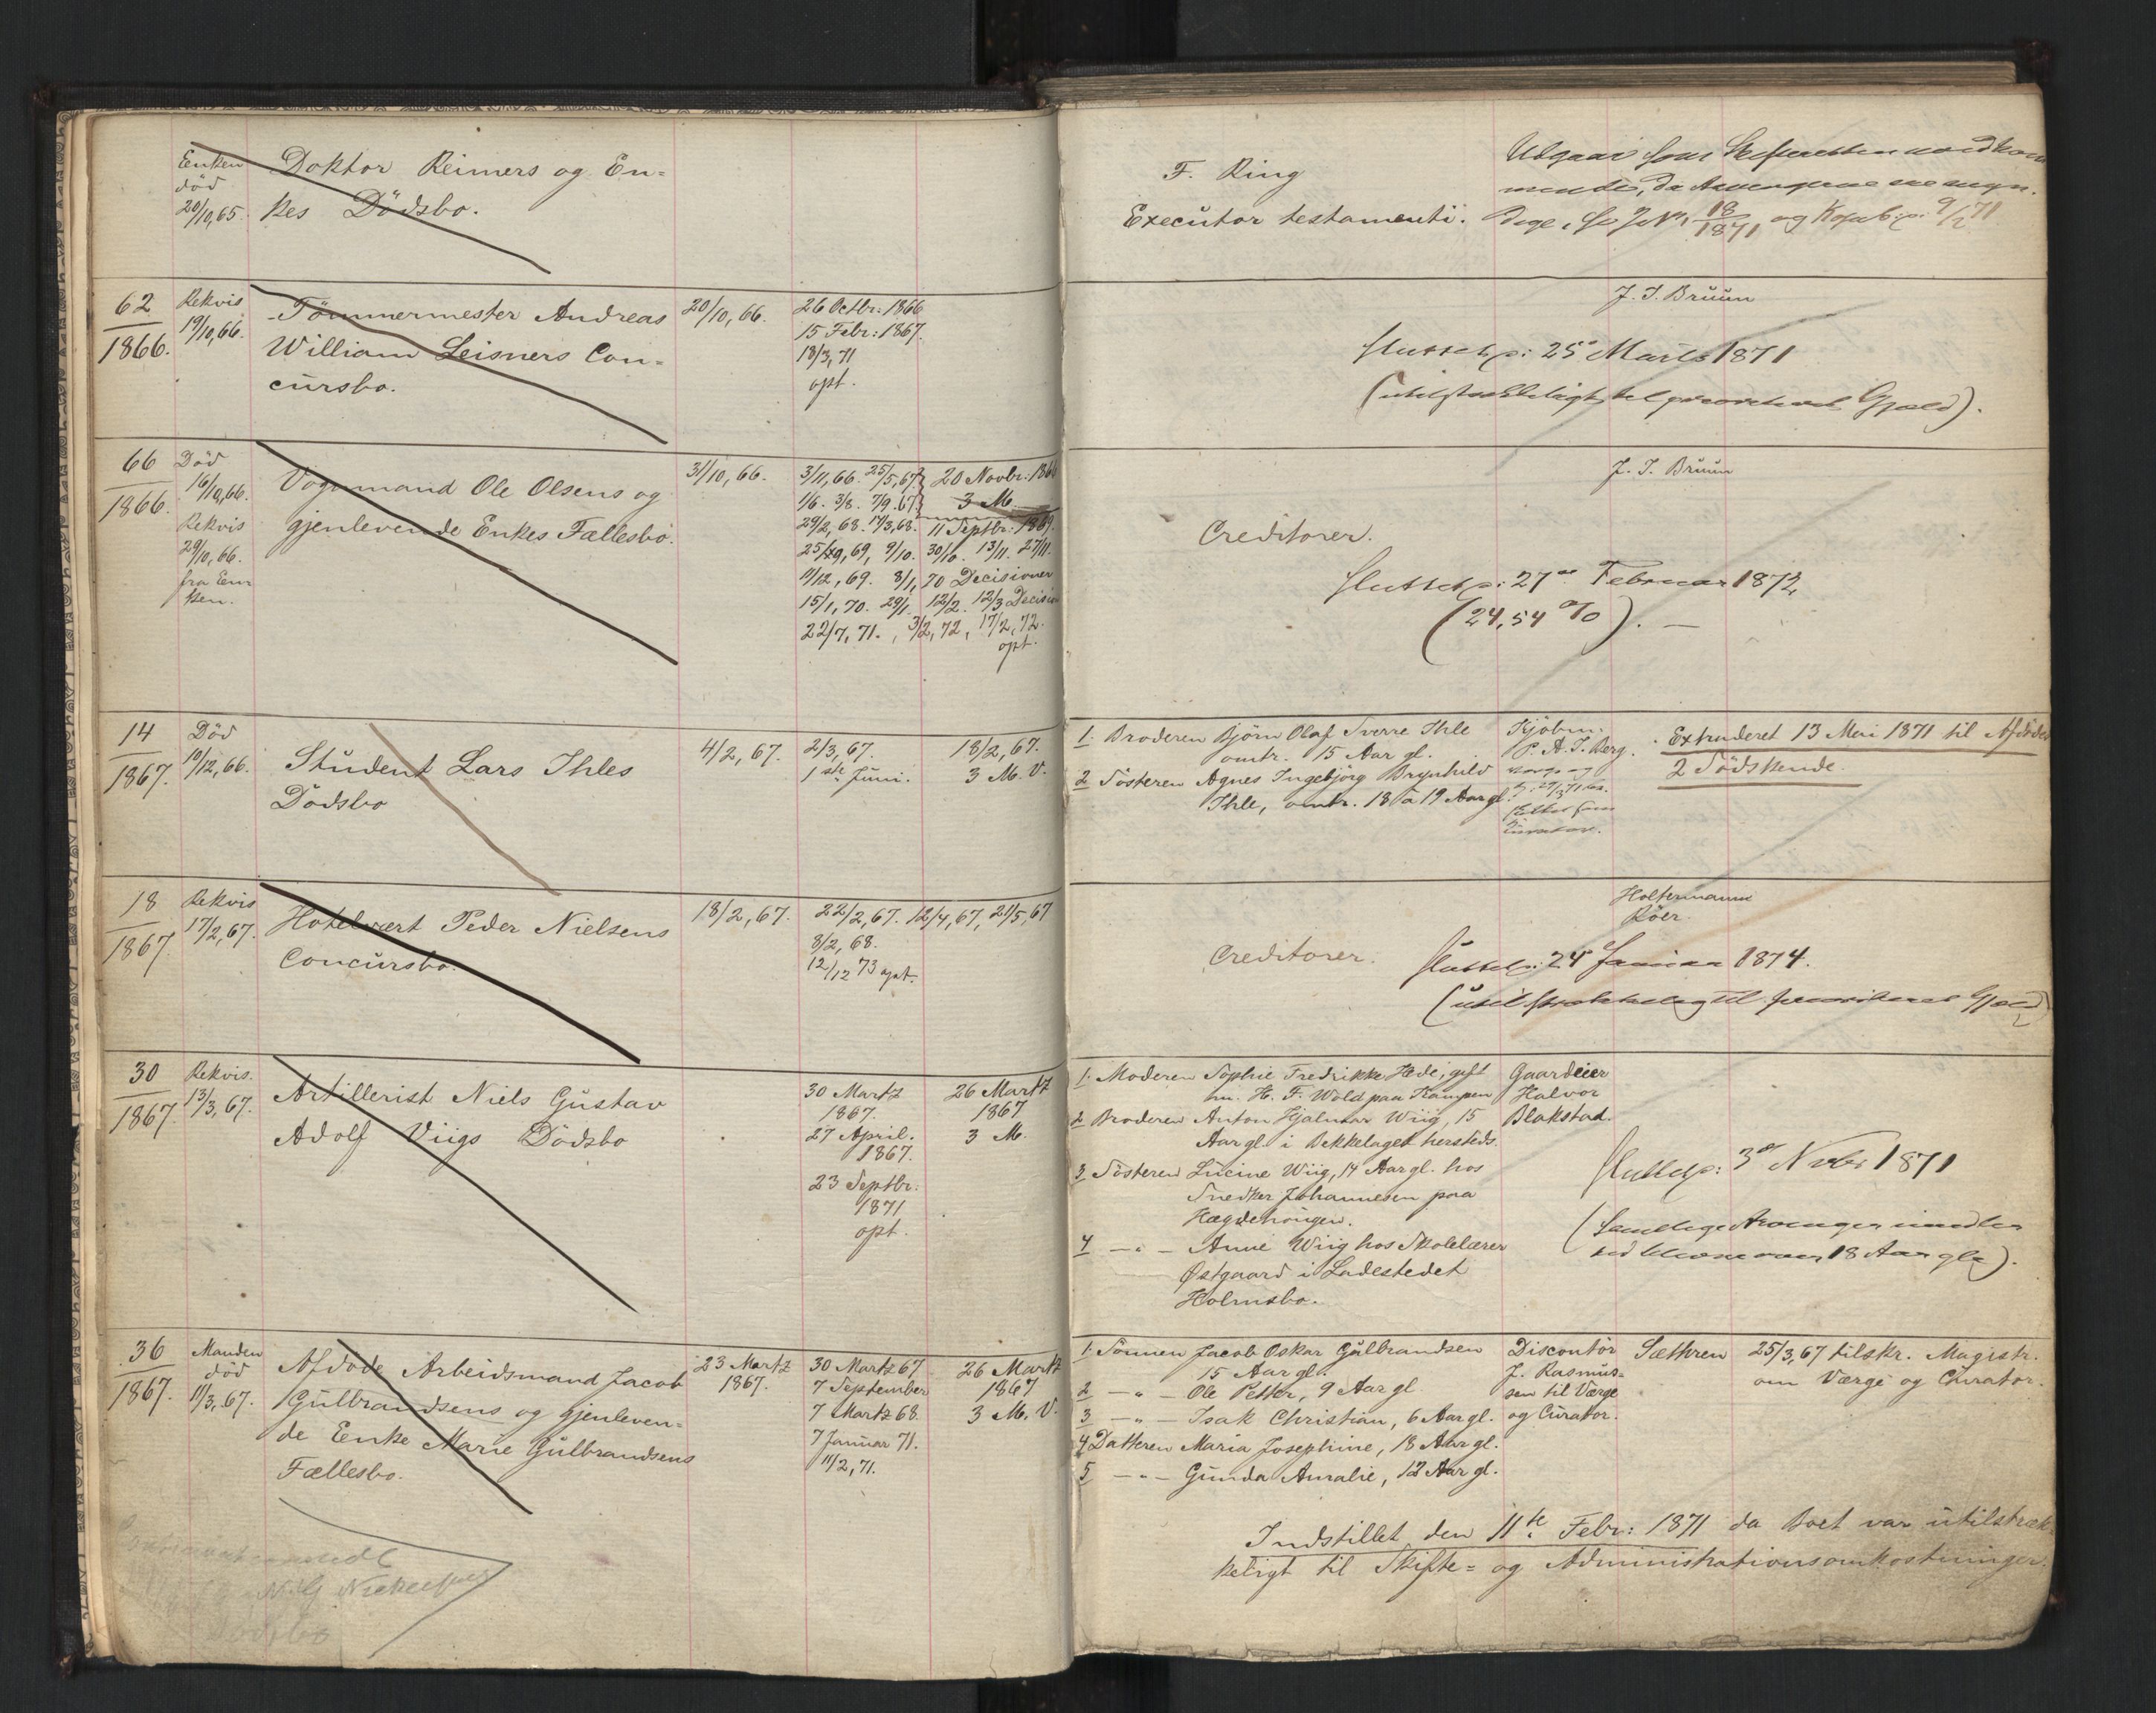 Enken
död
20/10,65.
Doktor Reimers og En=
kes Dödsbo.
F. Ring
Executor testamenti.
Udgaar som Skifteretten uvedkom
mende, da Arvingerne ere myn.
dige, se 18/1871 og 9/2 71
62
1866.
Rekvis
19/10,66.
Tömmermester Andreas
William Leisners Con=
cursbo.
20/10, 66.
26 Octbr: 1866
15 Febr: 1867.
18/3, 71
opt.
J. J. Bruun
Sluttet 25 Marts 1871
(utilstrækkeligt til prioriteret Gjæld).
66
1866.
Död
16/10,66.
Rekvis
29/10, 66.
fra Enn
ken.
Vognmand Ole Olsens og
gjenlevende Enkes Fællesbo.
31/10, 66.
3/11, 66. 25/5, 67.
1/6. 3/8. 7/9. 67.
29/2, 68. 14/3, 68.
20 Novbr: 1866
3 M.
11 Septbr: 1869.
25/9, 69, 9/10. 30/10. 13/11. 27/11.
11/12, 69. 8/1, 70 Decisioner
15/1, 70. 29/1. 12/2. 12/3 Decision
22/7, 71., 3/2, 72, 17/2, 72.
opt.
J. J. Bruun
Creditorer.
Sluttet 27 Februar 1872,
(24,54 %). —
14
1867.
Död
10/12, 66.
Student Lars Ihles
Dödsbo
4/2, 67.
2/3, 67.
1ste Juni.
18/2, 67.
3 M. V.
1. Broderen Björn Olaf Sverre Ihle
omtr. 15 Aar gl.
2 Sösteren Agnes Ingebjörg Brynhild
Ihle, omtr. 18 a 19 Aar gl.
Kjöbm.
P. A. J. Berg.
Extraderet 13 Mai 1871 til Afdödes
2 Södskende.
18
1867.
Rekvis
17/2, 67.
Hotelvært Peder Nielsens
Concursbo.
18/2, 67.
22/2, 67. 12/4, 67, 21/5, 67
8/2, 68.
12/12 73 opt.
Holtermann
Röer.
Creditorer.
Sluttet 24 Januar 1874.
(utilstrækkelig til prioriteret Gjæld)
30
1867.
Rekvis.
13/3, 67.
Artillerist Niels Gustav
Adolf Viigs Dödsbo
30 Martz
1867.
27 April.
1867.
23 Septbr:
1871
opt.
26 Martz
1867
3 M.
1. Moderen Sophie Fredrikke Hede, gift
m. H. F. Wold paa Kampen
2 Broderen Anton Hjalmar Wiig, 15
Aar gl. i Bekkelaget hersteds.
3 Sösteren Lucine Wiig, 14 Aar gl. hos
Snedker Johannesen paa
Hægdehougen.
4 — " — Anne Wiig hos Skolelærer
Østgaard i Ladestedet
Holmsbo.
Gaardeier
Halvor
Blakstad.
Sluttet 3 Novbr 1871
(Samtlige Arvinger
18 Aar gle).
36
1867.
Manden
död
11/3, 67.
Afdöde Arbeidsmand Jacob
Gulbrandsens og gjenleven=
de Enke Marie Gulbrandsens
Fællesbo.
23 Martz
1867.
30 Martz 67.
7 September
7 Martz 68.
7 Januar 71.
11/2, 71.
26 Martz
1867
3 M. V.
1. Sönnen Jacob Oskar Gulbrandsen
15 Aar gl.
2 — " — Ole Petter, 9 Aar gl
3 — " — Isak Christian, 6 Aar gl.
4 Datteren Maria Josephine, 18 Aar gl.
5 — " — Gunda Amalie, 12 Aar gl.
Discontör
J. Rasmus=
sen til Værge
og Curator.
Sæthren
25/3, 67 tilskr. Magistr.
om Værge og Curator.
Indstillet den 11te Febr: 1871 da Boet var utilstræk=
keligt til Skifte= og Administrationsomkostninger.
Dödsbo